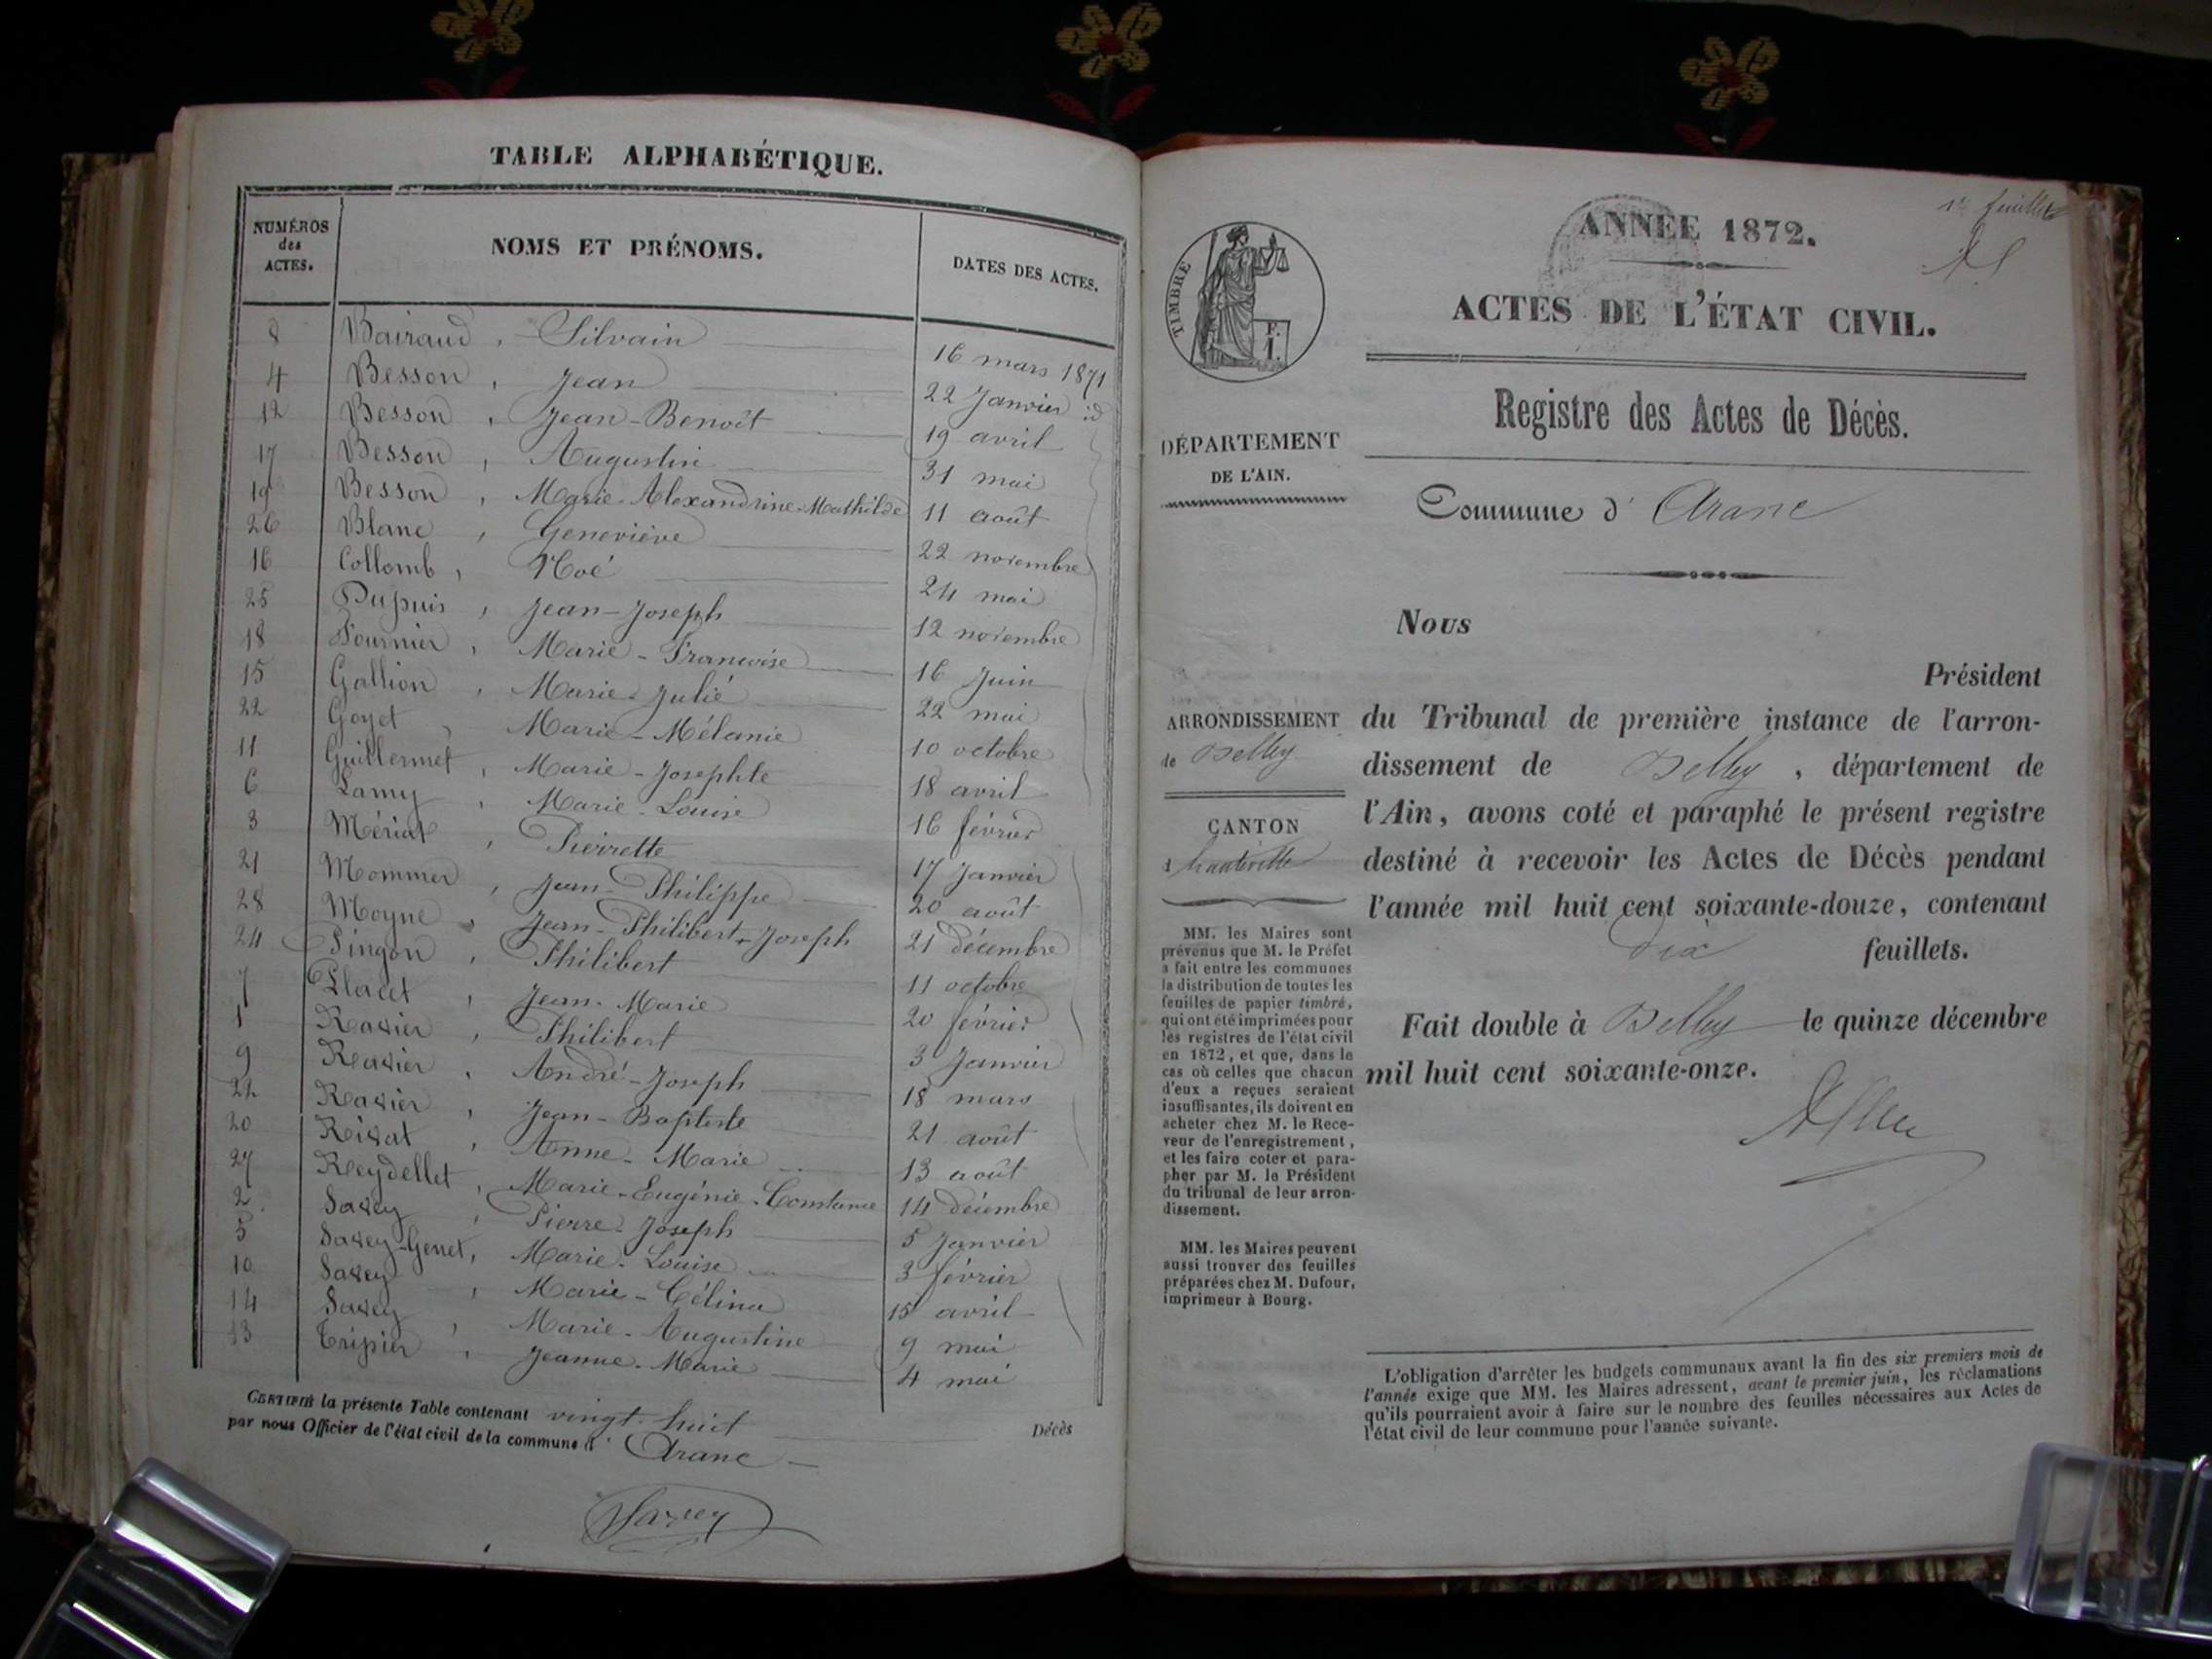 TABLE ALPHABÉTIQUE.
NUMÉROS des ACTES. NOMS ET PRÉNOMS. DATES DES ACTES.
8 Bairaud, Silvain 16 mars 1871
4 Besson, Jean 22 Janvier id
12 Besson, Jean-Benoît 19 avril
17 Besson, Augustin 31 mai
19 Besson, Marie-Alexandrine-Mathilde 11 août
26 Blanc, Geneviève 22 novembre
16 Collomb, Noé 24 mai
25 Dupuis, Jean-Joseph 12 novembre
18 Fournier, Marie-Françoise 16 Juin
15 Gallion, Marie-Julie 22 mai
22 Goyet, Marie-Mélanie 10 octobre
11 Guillermet, Marie-Josephte 18 avril
6 Lamy, Marie-Louise 16 février
3 Mériat, Pierrette 17 Janvier
21 Mommer, Jean-Philippe 20 août
28 Moyne, Jean-Philibert-Joseph 21 décembre
24 Pingon, Philibert 11 octobre
7 Placet, Jean-Marie 20 février
1 Ravier, Philibert 3 Janvier
9 Ravier, André-Joseph 18 mars
22 Ravier, Jean-Baptiste 21 août
20 Rivat, Anne-Marie 13 août
27 Reydellet, Marie-Eugénie-Constance 14 décembre
2 Savey, Pierre-Joseph 5 Janvier
5 Savey-Genet, Marie-Louise 3 février
10 Savey, Marie-Célina 15 avril
14 Savey, Marie-Augustine 9 mai
13 Tripier, Jeanne-Marie 4 mai
CERTIFIÉ la présente Table contenant vingt-huit Décès
par nous Officier de l'état civil de la commune d' Aranc
Savey
1er feuillet
ANNÉE 1872.
TIMBRE
F. I.
ACTES DE L'ÉTAT CIVIL.
Registre des Actes de Décès.
DÉPARTEMENT
DE L'AIN.
Commune d' Aranc
Nous
Président
ARRONDISSEMENT
de Belley
CANTON
d'hauteville
MM. les Maires sont
prévenus que M. le Préfet
a fait entre les communes
la distribution de toutes les
feuilles de papier timbré,
qui ont été imprimées pour
les registres de l'état civil
en 1872, et que, dans le
cas où celles que chacun
d'eux a reçues seraient
insuffisantes, ils doivent en
acheter chez M. le Rece-
veur de l'enregistrement,
et les faire coter et para-
pher par M. le Président
du tribunal de leur arron-
dissement.
MM. les Maires peuvent
aussi trouver des feuilles
préparées chez M. Dufour,
imprimeur à Bourg.
du Tribunal de première instance de l'arron-
dissement de Belley, département de
l'Ain, avons coté et paraphé le présent registre
destiné à recevoir les Actes de Décès pendant
l'année mil huit cent soixante-douze, contenant
dix feuillets.
Fait double à Belley le quinze décembre
mil huit cent soixante-onze.
L'obligation d'arrêter les budgets communaux avant la fin des six premiers mois de
l'année exige que MM. les Maires adressent, avant le premier juin, les réclamations
qu'ils pourraient avoir à faire sur le nombre des feuilles nécessaires aux Actes de
l'état civil de leur commune pour l'année suivante.